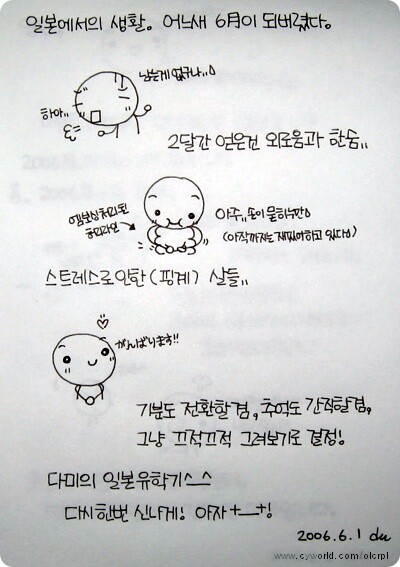 일본에서의 생활. 어느새 6月이 되버렸다.
남는게 없구나..
하아..
2달간 얻은건 외로움과 한숨..
엠보싱처리된
허리라인
아주..손이 물하누만
(아직까지는 재밌어하고 있다)
스트레스로 인한 (핑계) 살들..
がんばります!!
기분도 전환할겸, 추억도 간직할겸,
그냥 끄적끄적 그려보기로 결정!
다미의 일본유학기^_^
다시한번 신나게! 아자 +__+!
2006.6.1 du
www.cyworld.com/olcrpl